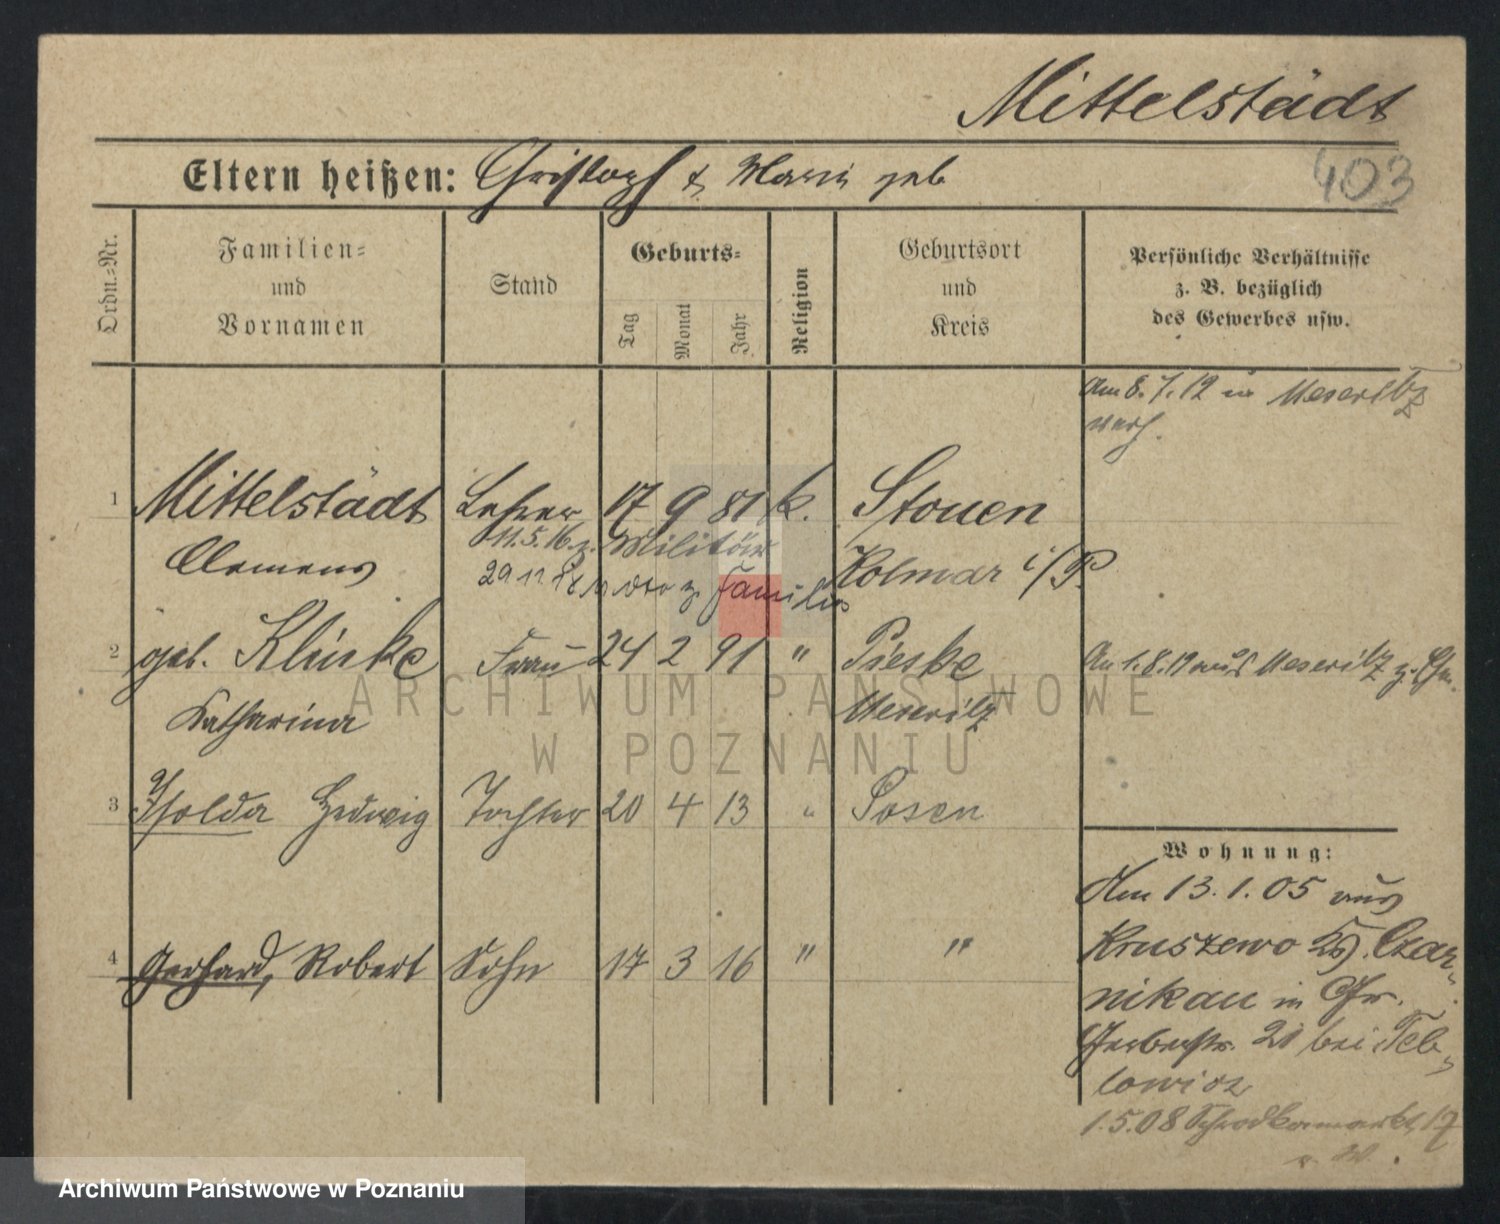 Mittelstädt
403
Eltern heißen: Christoph & Marie geb
Ordn.-Nr.
Familien-
und
Vornamen
Stand
Geburts-
Tag
Monat
Jahr
Religion
Geburtsort
und
Kreis
Persönliche Verhältnisse
z. B. bezüglich
des Gewerbes usw.
Am 8.7.12 in Meseritz
verh.
1 Mittelstädt Lehrer 17 9 81 k. Stouen
11.5.16 z. Militär
Clemens Kolmar i/P.
29 11 z. Familie
2 geb. Klinke Frau 24 2 91 " Pieske
Am 1.8.12 aus Meseritz z.
Katharina Meseritz
3 Isolda Hedwig Tochter 20 4 13 " Posen
Wohnung:
Am 13.1.05 aus
4 Gerhard, Robert Sohn 17 3 16 " "
Kruszewo Czar-
nikau in
Gerberstr. 20 bei
lowicz
1.5.08 17
ARCHIWUM PAŃSTWOWE
W POZNANIU
Archiwum Państwowe w Poznaniu